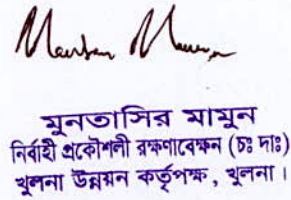 মুনতাসির মামুন
নির্বাহী প্রকৌশলী রক্ষণাবেক্ষন (চঃ দাঃ)
খুলনা উন্নয়ন কর্তৃপক্ষ, খুলনা।